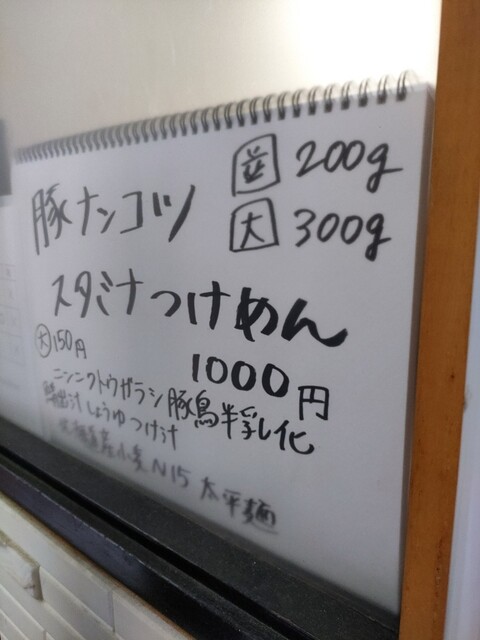 並 200g
豚ナンコツ 大 300g
スタミナつけめん
大 150円 1000円
ニンニクトウガラシ豚鳥半乳化
出汁しょうゆつけ汁
産小麦 N15 太平麺